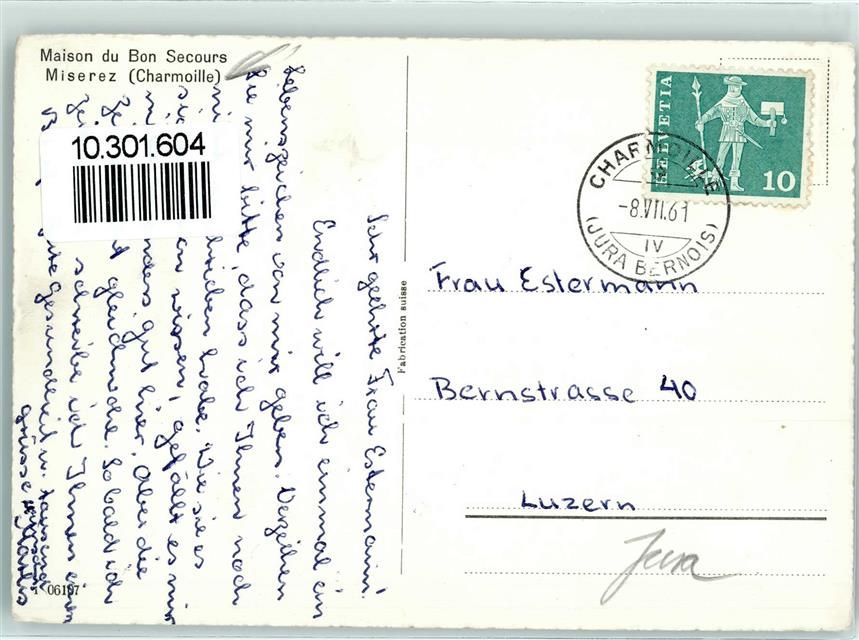 Maison du Bon Secours
Miserez (Charmoille)
10.301.604
HELVETIA
10
CHARMOILLE
-8.VII.61
IV
(JURA BERNOIS)
Fabrication suisse
Frau Estermann
Bernstrasse 40
Luzern
Jura
Sehr geehrte Frau Estermann!
Endlich will ich einmal ein
Lebenszeichen von mir geben. Verzeihen
Sie mir bitte, dass ich Ihnen noch
habe. Wie sie es
wissen, gefällt es mir
gut hier. Aber die
gleichwohl. Sobald ich
schreibe ich Ihnen einen
Gesundheit u. tausend
Grüsse
06107